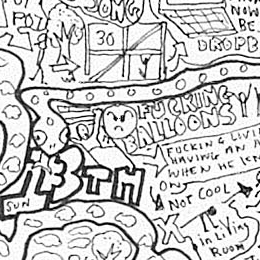 SONG
NOW
BE
PO
30
DROPB
FUCKING
BALLOONS
FUCKING LIVI
HAVING AN A
WHEN HE KN
ON
NOT COOL
13TH
SUN
X
IT LIVIN
IN LIVING
ROOM